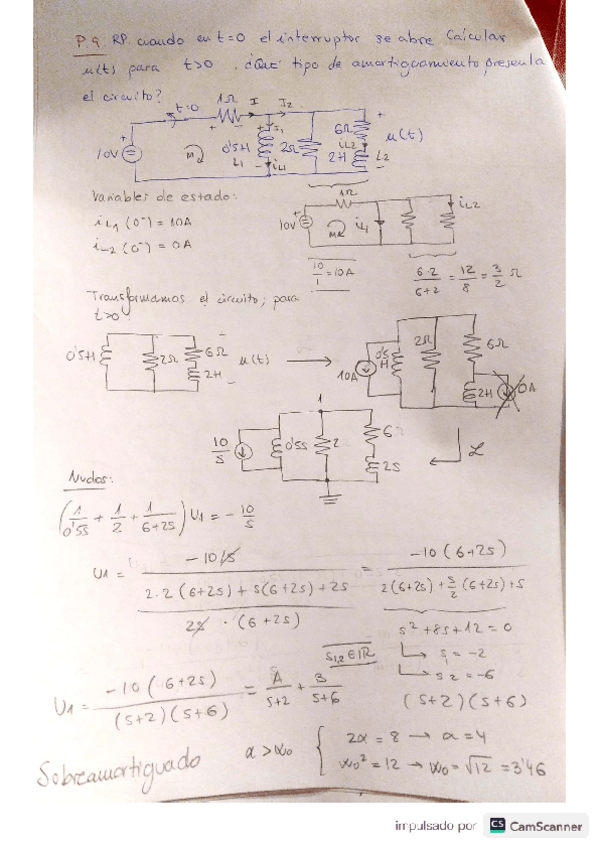 P.9. RP. cuando en t=0 el interruptor se abre Calcular
u(t) para t>0. ¿Qué tipo de amortiguamiento presenta
el circuito?
t=0 1Ω I I2
10V M 0'5H L1 I1 iL1 2Ω 6Ω iL2 2H L2 + u(t)
Variables de estado:
iL1 (0⁻) = 10A
iL2 (0⁻) = 0A
10V 1Ω M iL1 iL2
10/1 = 10A
6·2/(6+2) = 12/8 = 3/2 Ω
Transformamos el circuito; para
t>0
0'5H 2Ω 6Ω 2H u(t)
10A 0'5H 2Ω 6Ω 2H 0A
L
10/s 0'5s 1 2 6 2s
Nudos:
(1/0'5s + 1/2 + 1/(6+2s)) U1 = - 10/s
U1 = (-10/s) / ((2·2(6+2s) + s(6+2s) + 2s) / (2s · (6+2s))) = -10(6+2s) / (2(6+2s) + s/2 (6+2s) + s)
s² + 8s + 12 = 0
s1 = -2
s2 = -6
(s+2)(s+6)
s1,2 ∈ ℝ
U1 = -10(6+2s) / ((s+2)(s+6)) = A/(s+2) + B/(s+6)
Sobreamortiguado α > ω0 { 2α = 8 → α = 4
ω0² = 12 → ω0 = √12 = 3'46
impulsado por CS CamScanner